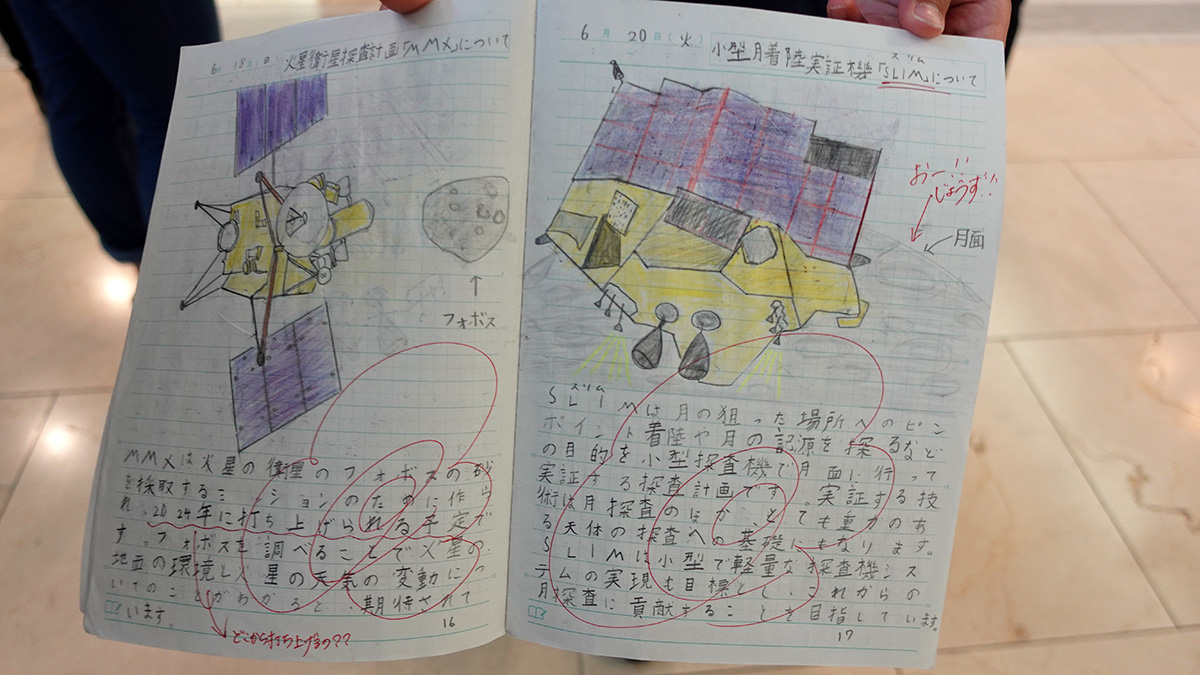 6月18日(日) 火星衛星探査計画「MMX」について
フォボス
MMXは火星の衛星のフォボスの砂
を採取するミッションのために作ら
れ、2024年に打ち上げられる予定で
す。フォボスを調べることで火星の
地面の環境と火星の天気の変動につ
いてのことがわかると、期待されて
います。
16
どこから打ち上げるの??
6月20日(火)
スリム
小型月着陸実証機「SLIM」について
おー!!
じょうず!!
月面
スリム
SLIMは月の狙った場所へのピン
ポイント着陸や月の記源を探るなど
の目的を小型探査機で月面に行って
実証する探査計画です。実証する技
術は月探査のほか、とても重力のあ
る天体の探査への基礎にもなります。
SLIMは小型で軽量な探査機シス
テムの実現も目標とし、これからの
月探査に貢献することを目指しています。
17